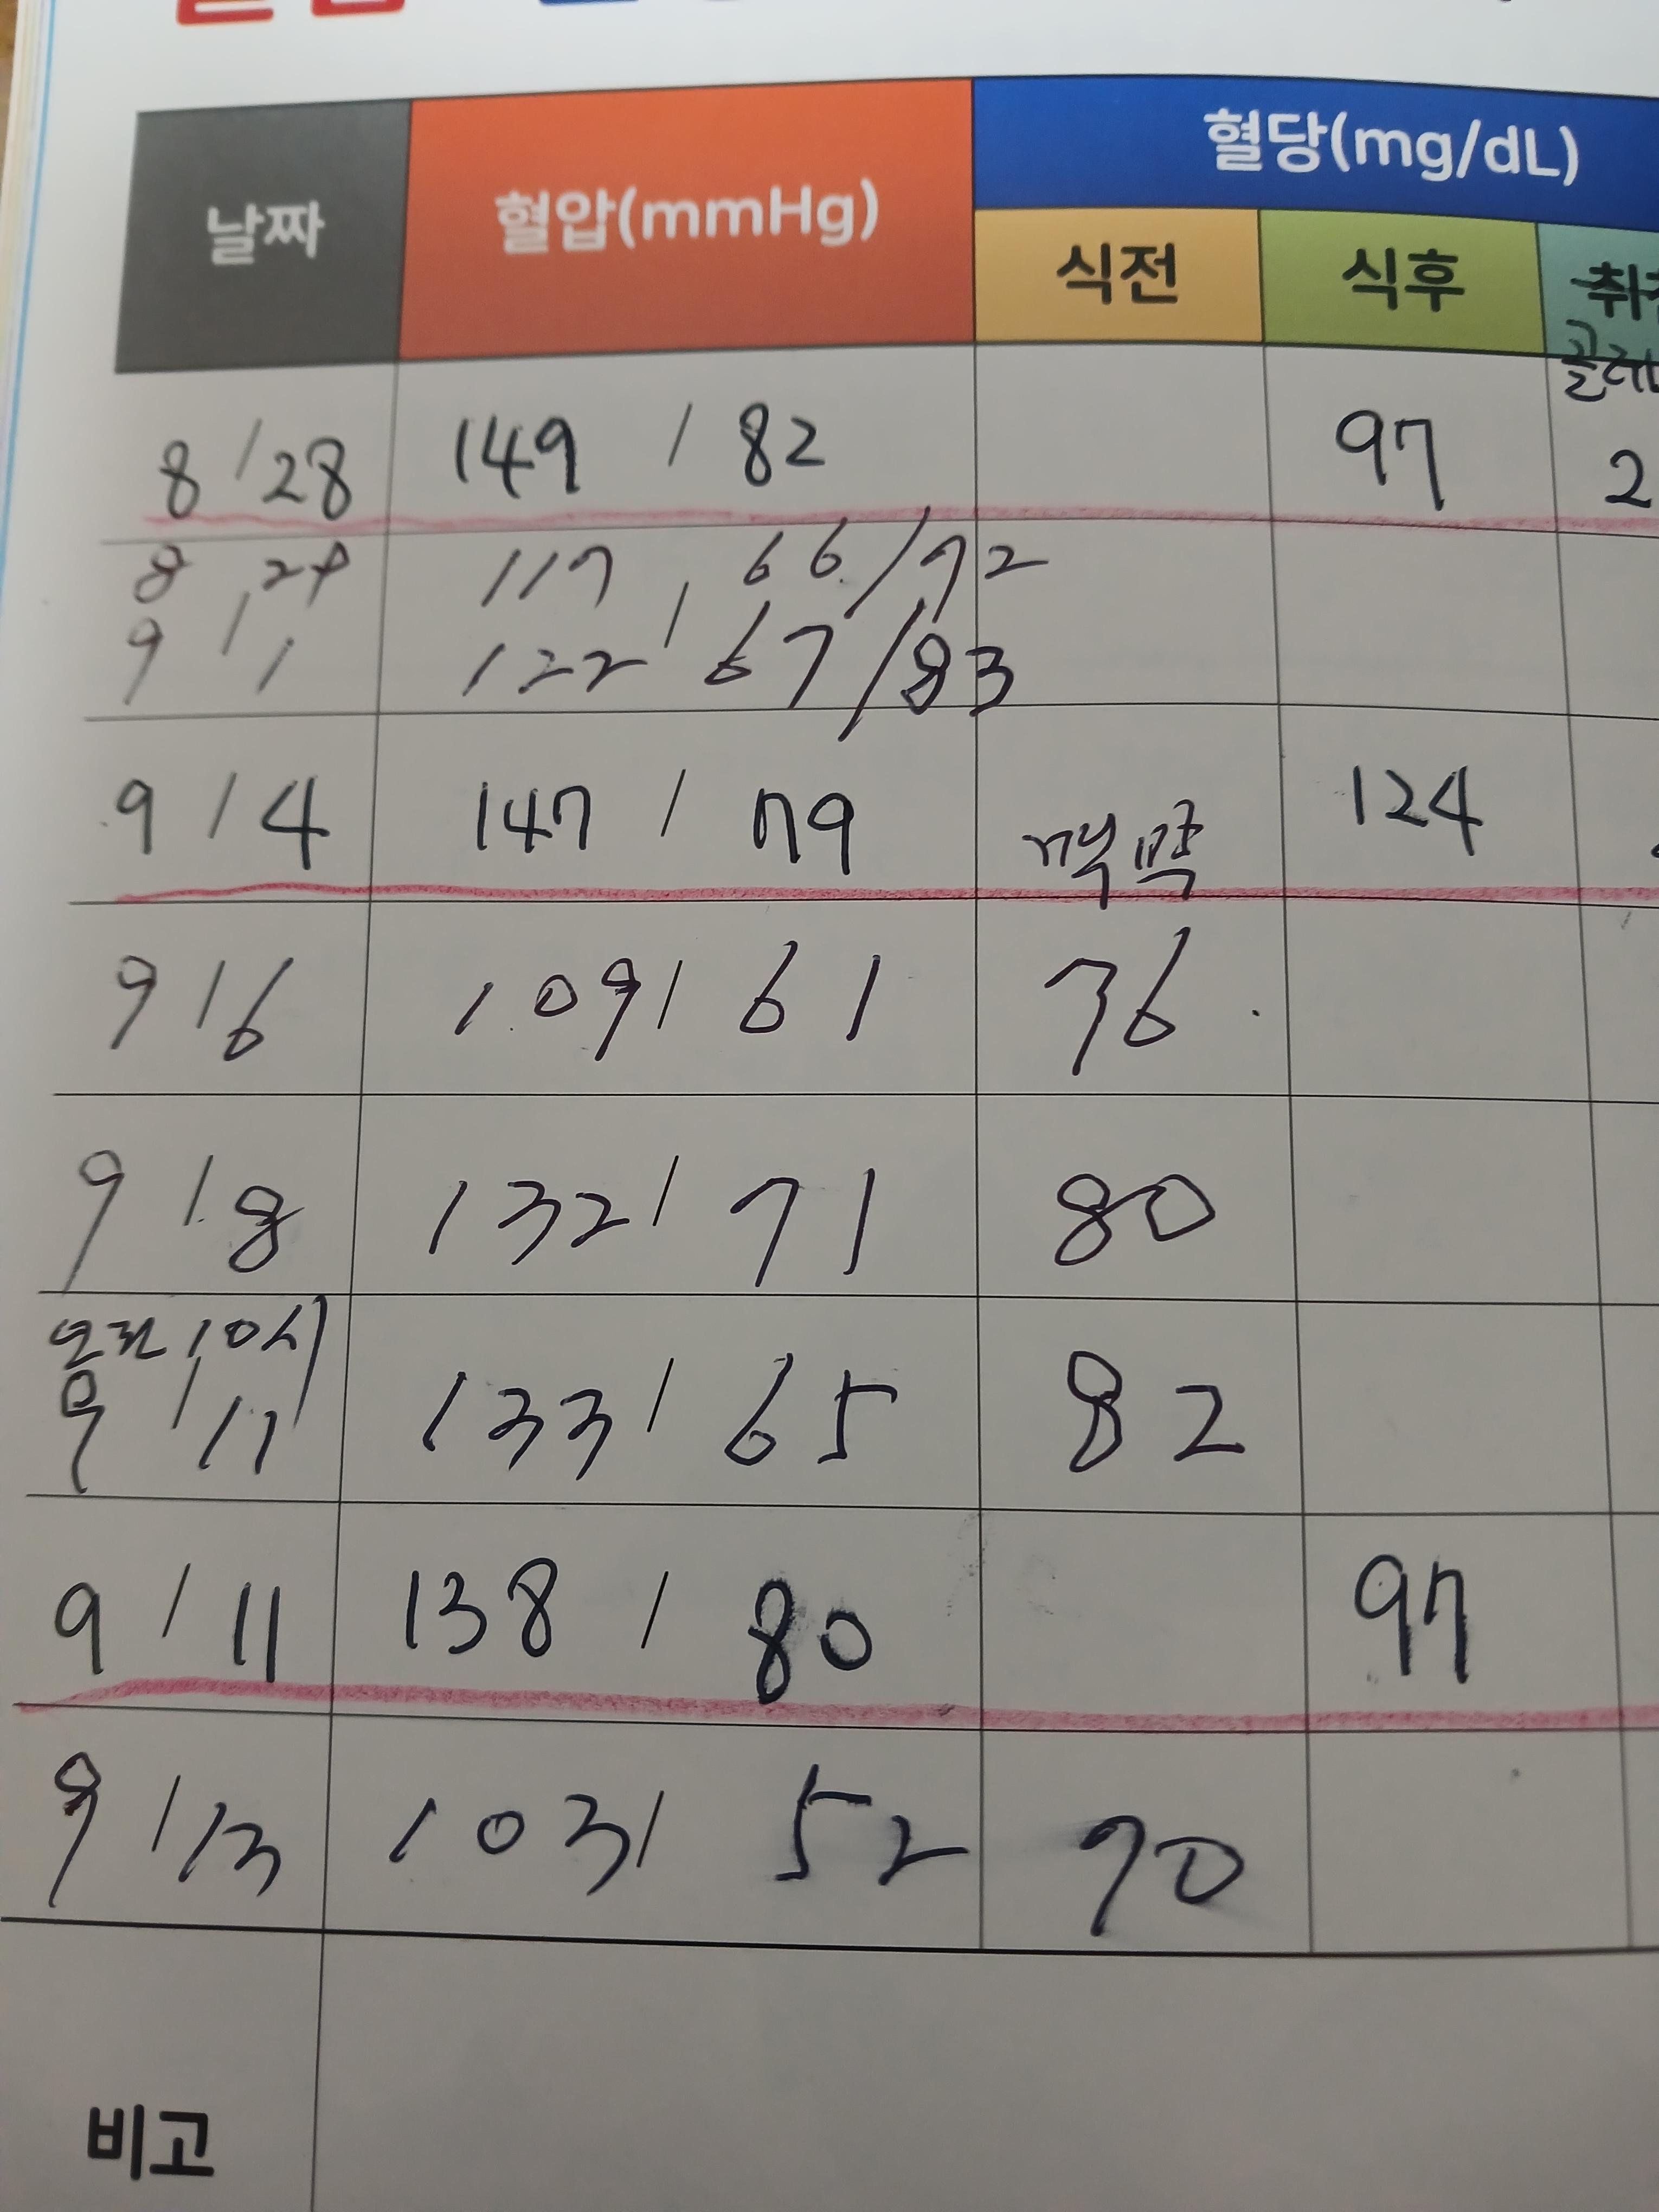 날짜 혈압(mmHg) 혈당(mg/dL)
식전 식후
8/28 149 / 82 97 2
8 29 117 / 66/72
9/1 122 / 67/83
9/4 147 / 79 맥박 124
9/6 109/61 76
9/8 132/71 80
오전 10시
9/11 133/65 82
9/11 138/80 97
9/13 103/52 70
비고